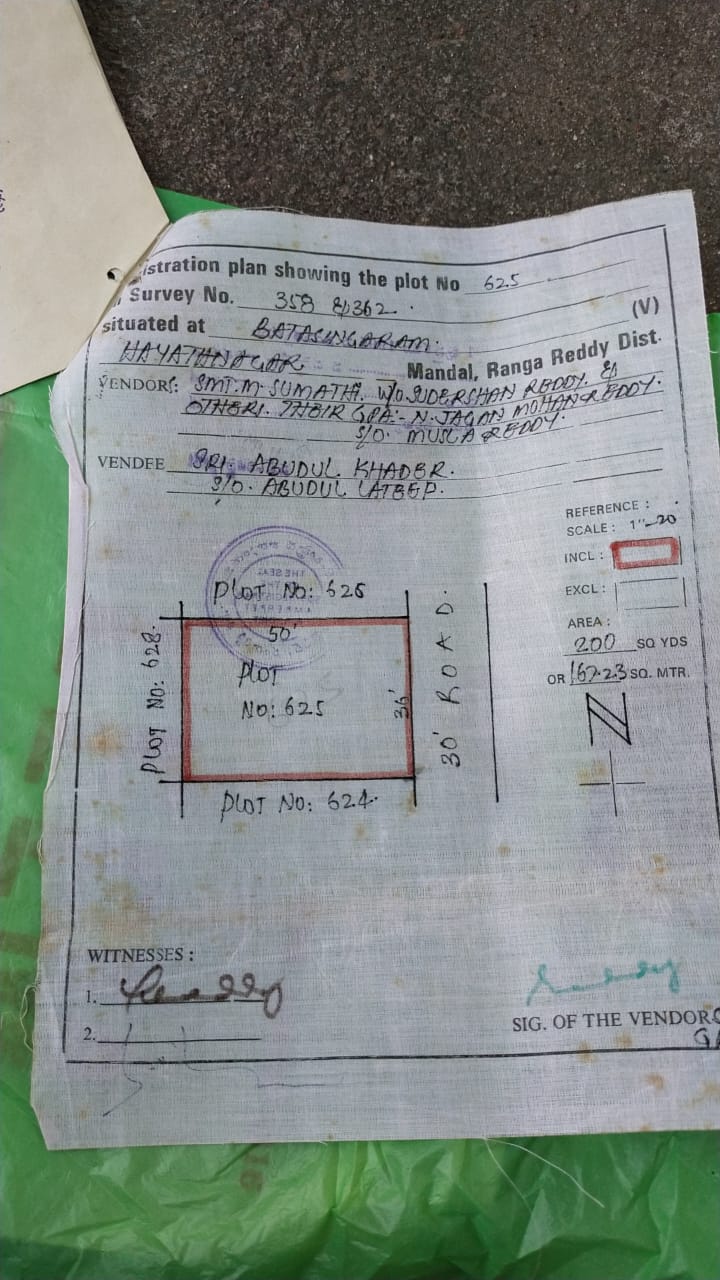 istration plan showing the plot No 625
Survey No. 358 & 362.
situated at BATASINGARAM. (V)
HAYATHNAGAR Mandal, Ranga Reddy Dist.
VENDORS: SMT. M. SUMATHI. W/O. SUDERSHAN REDDY. &
OTHERS. THEIR GPA:- N. JAGAN MOHAN REDDY.
S/O. MUSLA REDDY.
VENDEE SRI. ABUDUL KHADER.
S/O. ABUDUL LATEEP.
REFERENCE :
SCALE : 1"-20
INCL :
EXCL :
AREA :
200 SQ YDS
OR 167.23 SQ. MTR.
N
PLOT NO: 626
50'
PLOT NO: 628.
PLOT
NO: 625
36'
30' ROAD.
PLOT NO: 624.
WITNESSES :
1.
2.
SIG. OF THE VENDOR